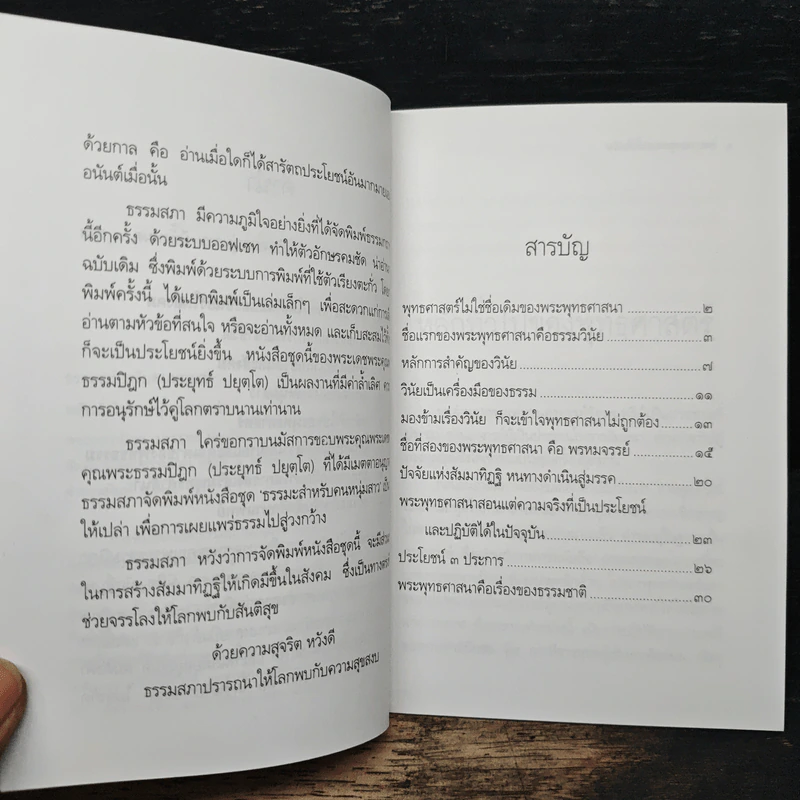 ด้วยกาล คือ อ่านเมื่อใดก็ได้สารัตถประโยชน์อันมากมาย
อนันต์เมื่อนั้น
ธรรมสภา มีความภูมิใจอย่างยิ่งที่ได้จัดพิมพ์
นี้อีกครั้ง ด้วยระบบออฟเซท ทำให้ตัวอักษรคมชัด น่าอ่าน
ฉบับเดิม ซึ่งพิมพ์ด้วยระบบการพิมพ์ที่ใช้ตัวเรียงตะกั่ว
พิมพ์ครั้งนี้ ได้แยกพิมพ์เป็นเล่มเล็กๆ เพื่อสะดวกแก่
อ่านตามหัวข้อที่สนใจ หรือจะอ่านทั้งหมด และเก็บสะสมไว้
ก็จะเป็นประโยชน์ยิ่งขึ้น หนังสือชุดนี้ของพระเดชพระคุณ
ธรรมปิฎก (ประยุทธ์ ปยุตฺโต) เป็นผลงานที่มีค่าล้ำเลิศ
การอนุรักษ์ไว้คู่โลกตราบนานเท่านาน
ธรรมสภา ใคร่ขอกราบนมัสการขอบพระคุณ
คุณพระธรรมปิฎก (ประยุทธ์ ปยุตฺโต) ที่ได้มีเมตตา
ธรรมสภาจัดพิมพ์หนังสือชุด 'ธรรมะสำหรับคนหนุ่มสาว'
ให้เปล่า เพื่อการเผยแพร่ธรรมไปสู่วงกว้าง
ธรรมสภา หวังว่าการจัดพิมพ์หนังสือชุดนี้ จะมี
ในการสร้างสัมมาทิฏฐิให้เกิดมีขึ้นในสังคม ซึ่งเป็นทาง
ช่วยจรรโลงให้โลกพบกับสันติสุข
ด้วยความสุจริต หวังดี
ธรรมสภาปรารถนาให้โลกพบกับความสุขสงบ
สารบัญ
พุทธศาสตร์ไม่ใช่ชื่อเดิมของพระพุทธศาสนา ๒
ชื่อแรกของพระพุทธศาสนาคือธรรมวินัย ๓
หลักการสำคัญของวินัย ๗
วินัยเป็นเครื่องมือของธรรม ๑๑
มองข้ามเรื่องวินัย ก็จะเข้าใจพุทธศาสนาไม่ถูกต้อง ๑๓
ชื่อที่สองของพระพุทธศาสนา คือ พรหมจรรย์ ๑๕
ปัจจัยแห่งสัมมาทิฏฐิ หนทางดำเนินสู่มรรค ๒๐
พระพุทธศาสนาสอนแต่ความจริงที่เป็นประโยชน์
และปฏิบัติได้ในปัจจุบัน ๒๓
ประโยชน์ ๓ ประการ ๒๖
พระพุทธศาสนาคือเรื่องของธรรมชาติ ๓๐